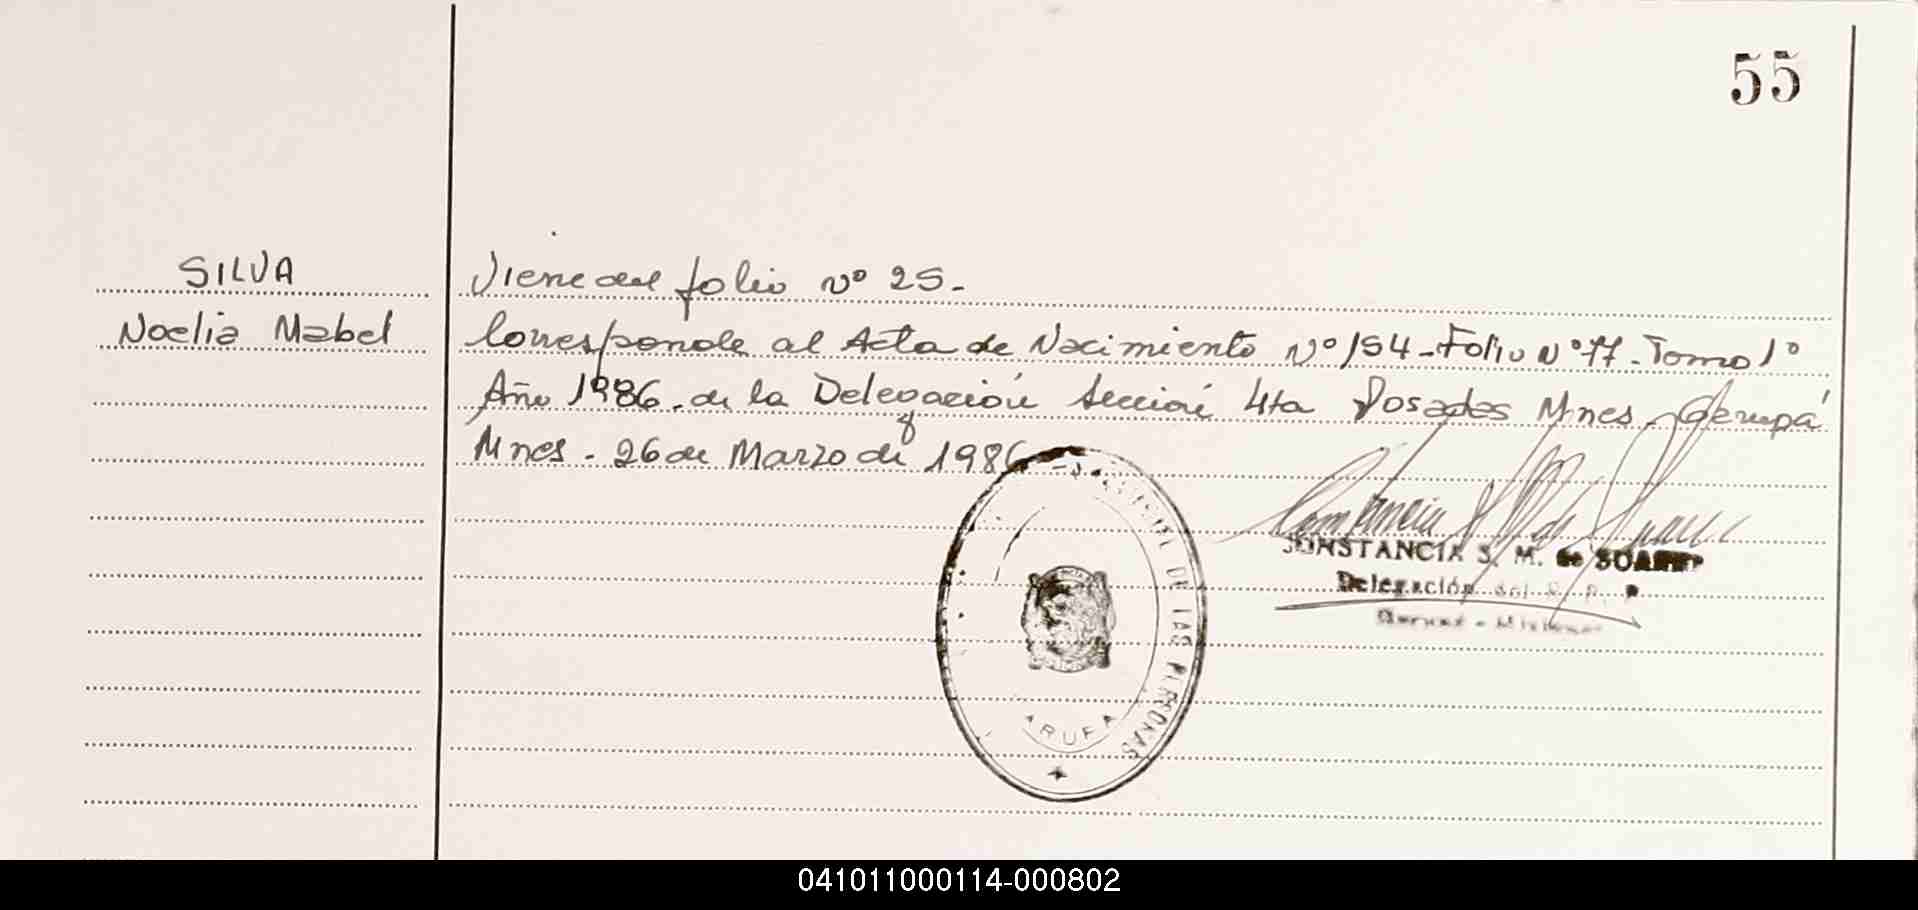 55
SILVA
Noelia Mabel
Viene del folio nº 25.-
Corresponde al Acta de Nacimiento Nº 154-Folio Nº 77-Tomo 1º
Año 1986. de la Delegación Sección 4ta Posadas Mnes.- Garupá
Mnes.- 26 de Marzo de 1986
DE LAS PERSONAS
CONSTANCIA S. M. de SOAREZ
Delegación del R. P. P
Misiones
041011000114-000802